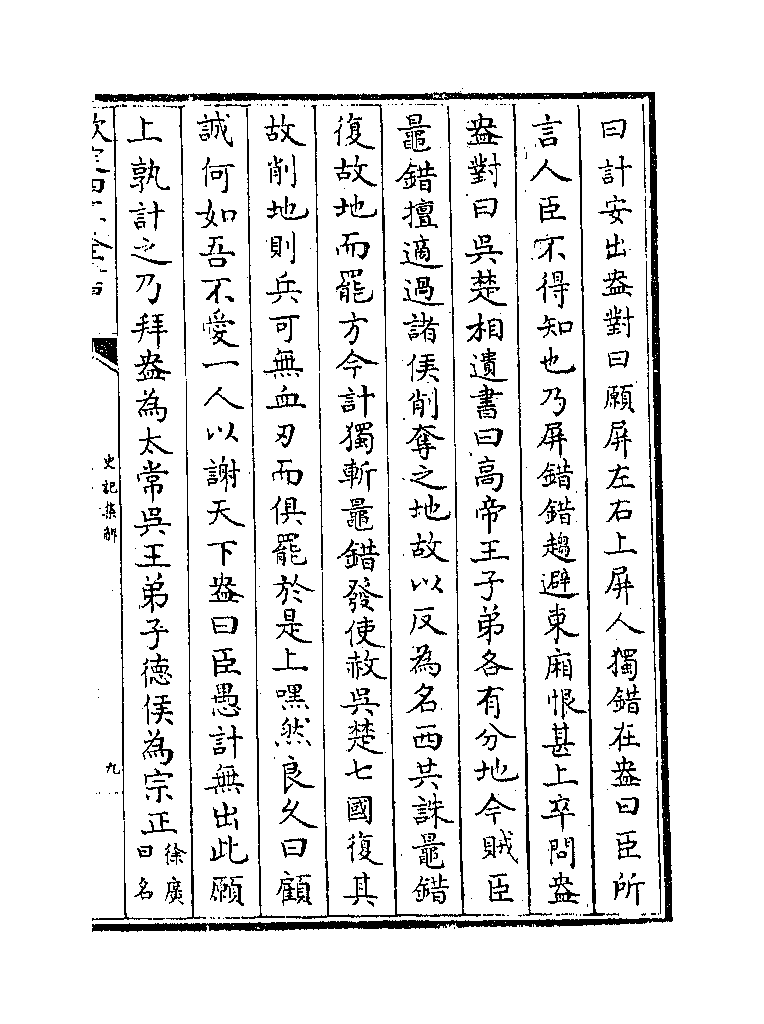 曰計安出盎對曰願屏左右上屏人獨錯在盎曰臣所
言人臣不得知也乃屏錯錯趨避東廂恨甚上卒問盎
盎對曰吳楚相遺書曰高帝王子弟各有分地今賊臣
鼂錯擅適過諸侯削奪之地故以反為名西共誅鼂錯
復故地而罷方今計獨斬鼂錯發使赦吳楚七國復其
故削地則兵可無血刃而俱罷於是上嘿然良久曰顧
誠何如吾不愛一人以謝天下盎曰臣愚計無出此願
上孰計之乃拜盎為太常吳王弟子德侯為宗正徐廣
曰名
欽定四庫全書
史記集解
九